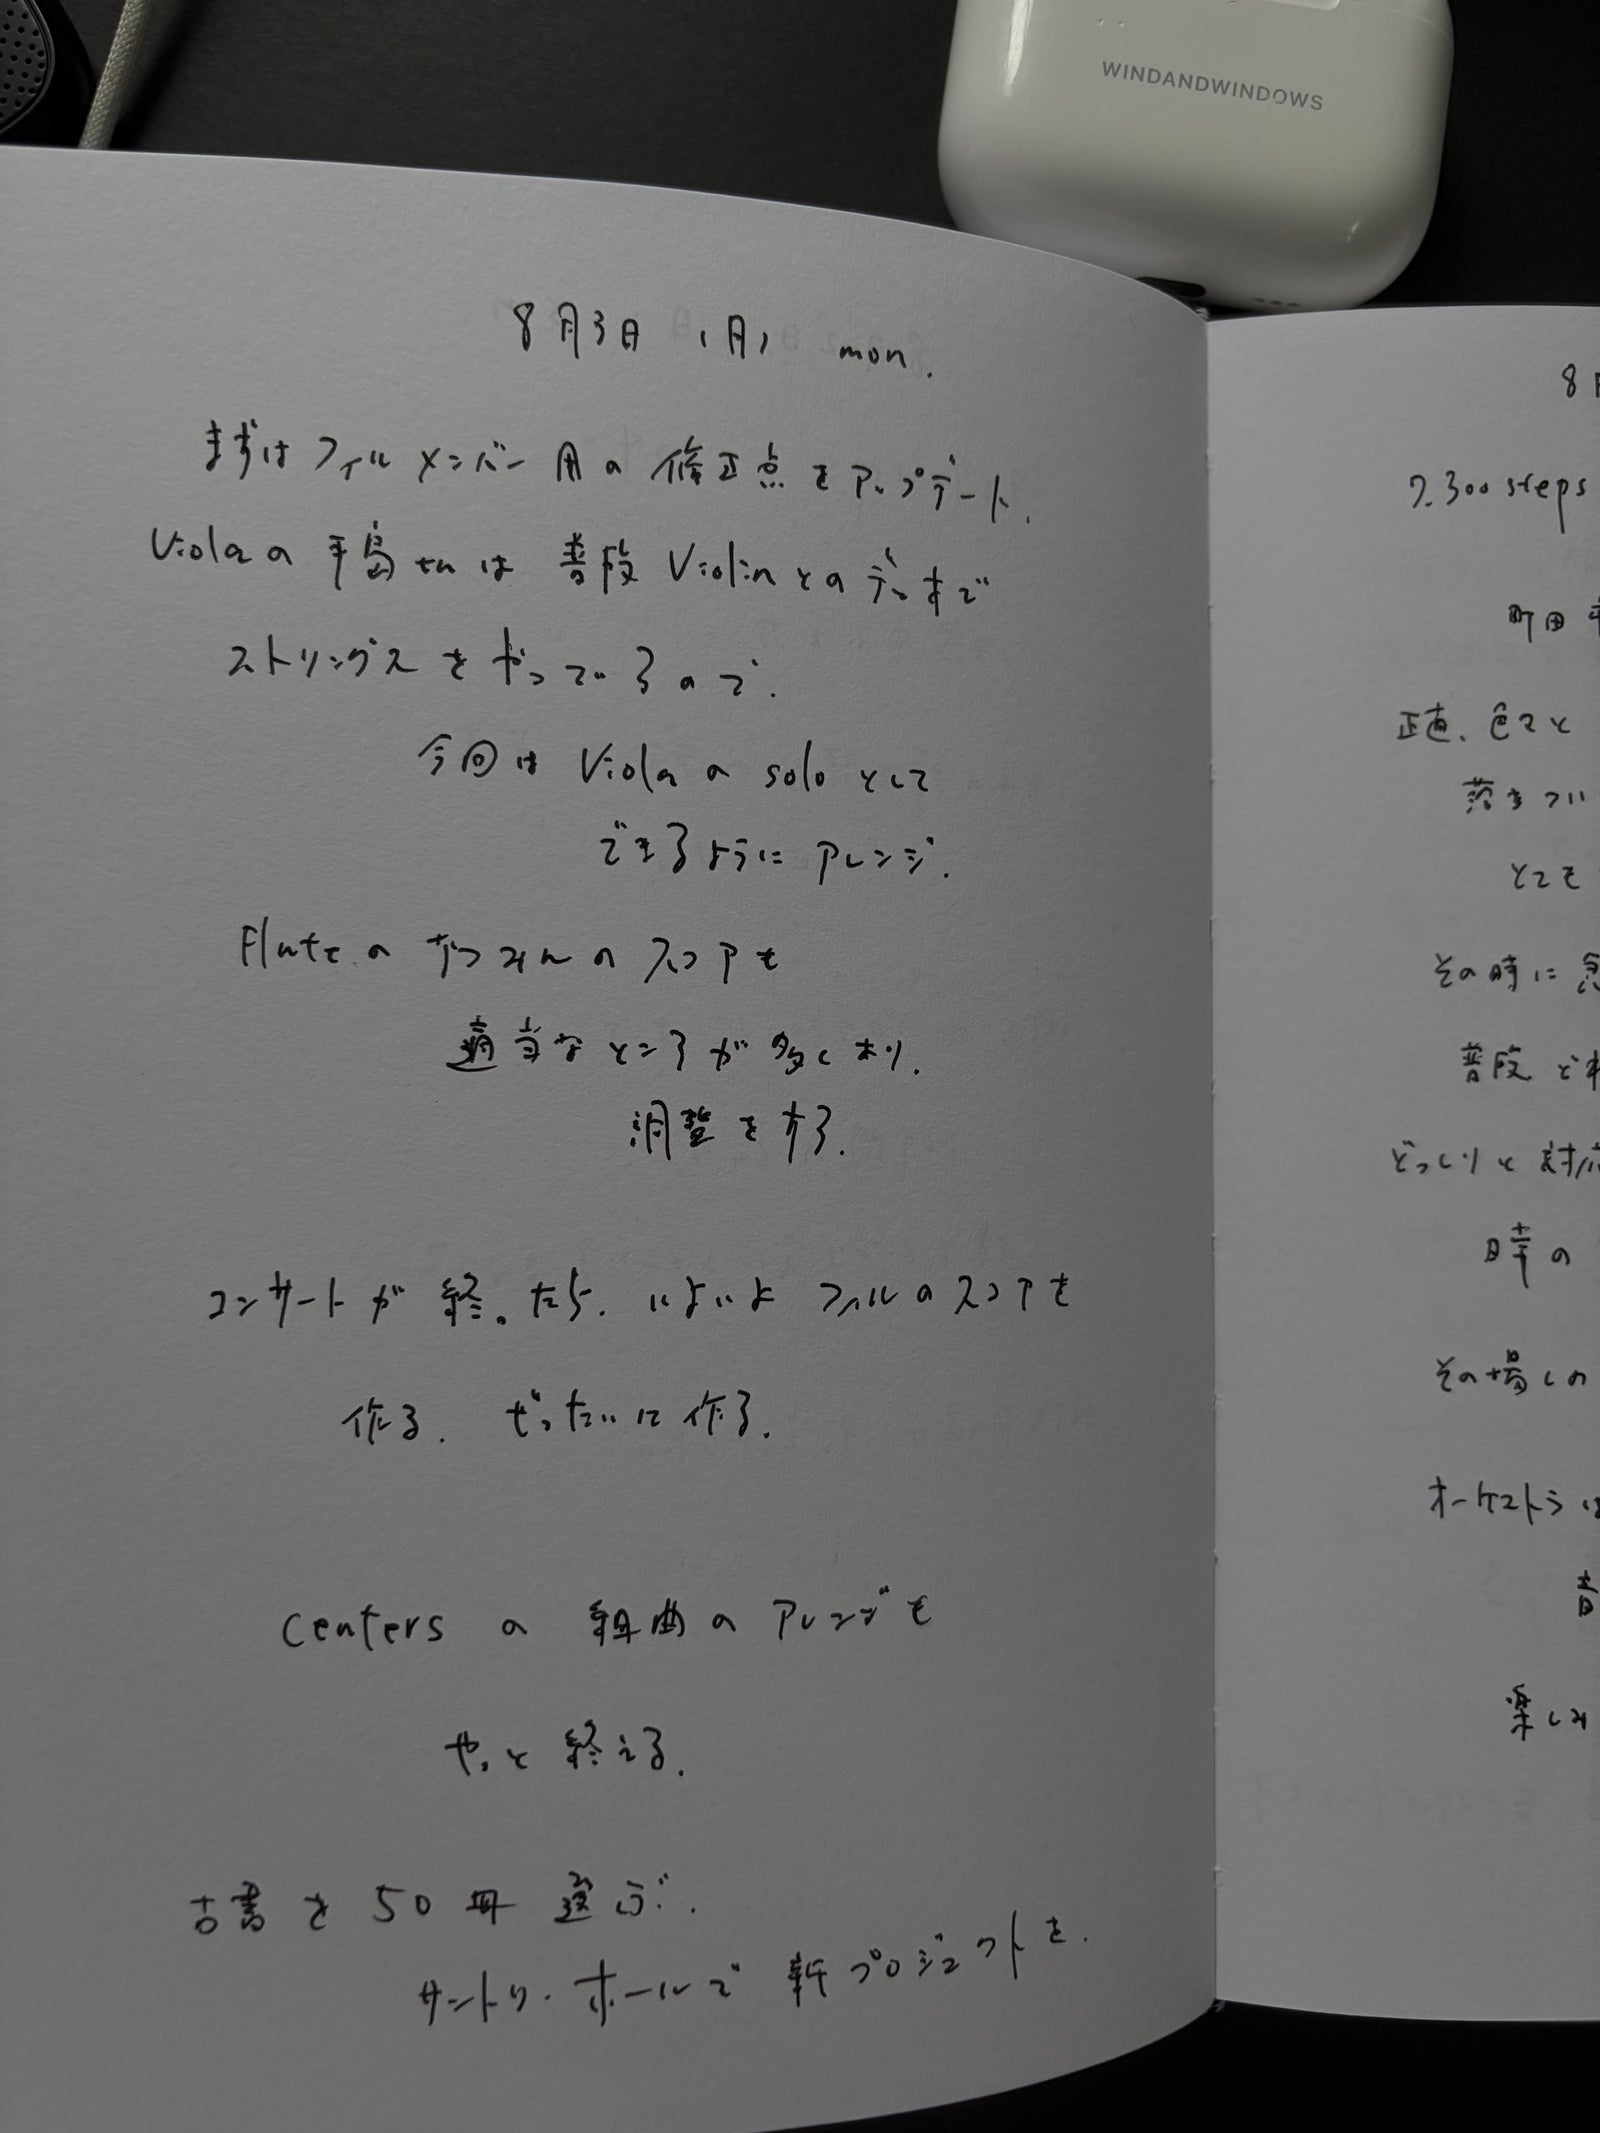 WINDANDWINDOWS
8月3日（月） mon.
まずは フィルメンバー用の修正点をアップデート.
Violaの平島さんは 普段 Violinとのデュオで
ストリングスをやっているので.
今回は Violaの solo として
できるように アレンジ.
Fluteの なつみんの スコアも
適当なところが多くあり.
調整をする.
コンサートが終ったら. いよいよ フィルのスコアも
作る. ぜったいに作る.
Centersの 組曲の アレンジも
やっと 終える.
古書を 50冊 選ぶ.
サントリーホールで 新プロジェクトを.
8
7.300 steps
町田
正直、色々と
落ちつい
とても
その時に
普段
どっしりと 対応
時の
その場しの
オーケストラは
音
楽しみ